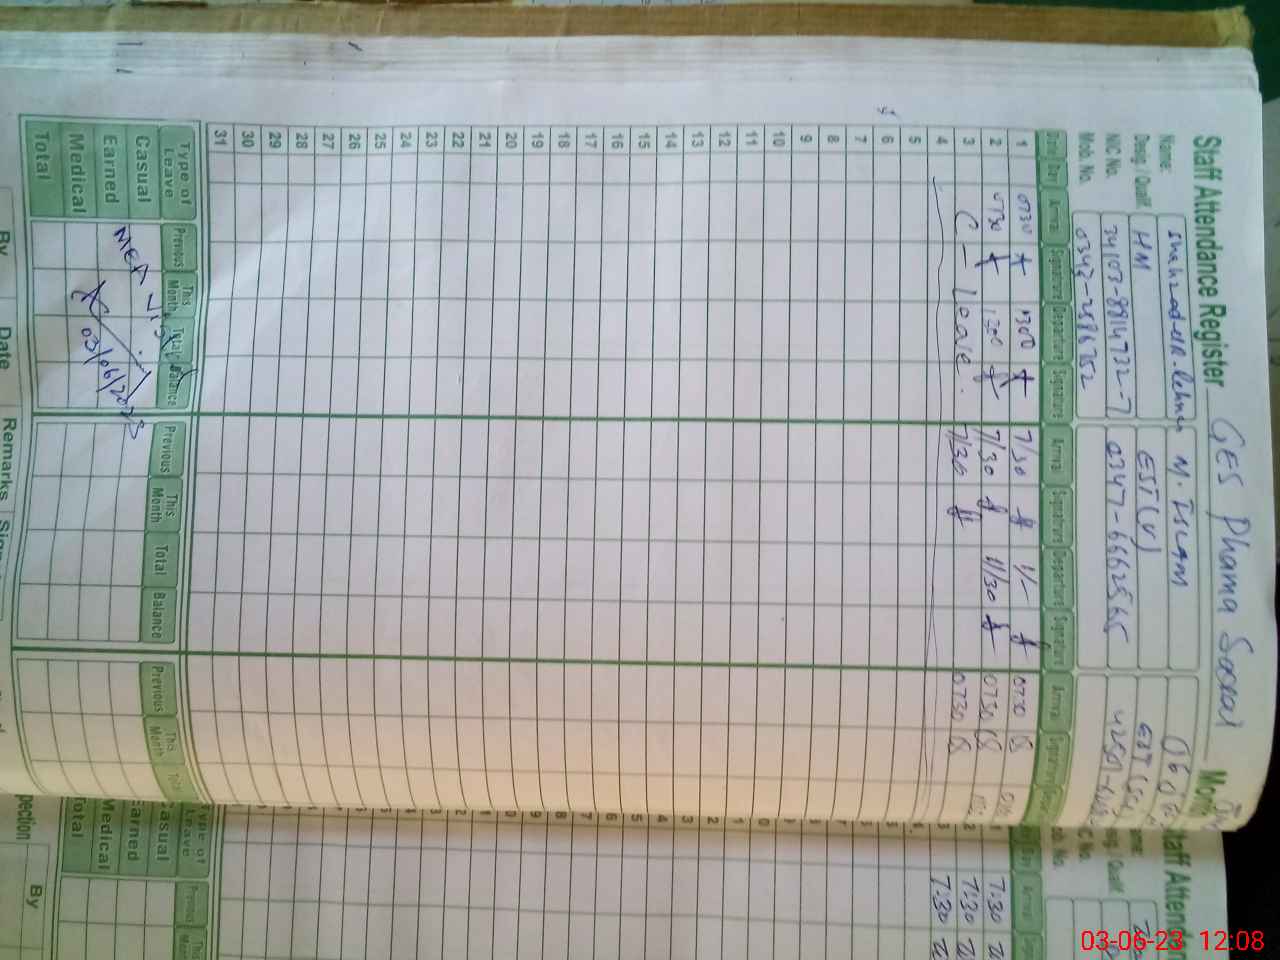 Staff Attendance Register GES Dhama Month
Name: M. ISLAM
Desig / Qualif. HM EST(V) EST
NIC No. 34103-8814732-7 0347-6662565
Mob. No. 0343-
Date Day Arrival Signature Departure Signature Arrival Signature Departure Signature Arrival Signature
1 0730 1300 7/30 1/- 0730
2 0730 1300 7/30 11/30 0730
3 C - Leave. 7/30 0730
4
5
6
7
8
9
10
11
12
13
14
15
16
17
18
19
20
21
22
23
24
25
26
27
28
29
30
31
Type of Leave Previous This Month Total Balance Previous This Month Total Balance Previous This Month Total
Casual
Earned
Medical
Total
MEA Visit
03/06/2023
By Date Remarks
Staff Attenda
Name:
Desig / Qualif
Day Arrival
1 7:30
2 7:30
3 7:30
Type of Leave Previous This Month
Casual
Earned
Medical
Total
By
03-06-23 12:08